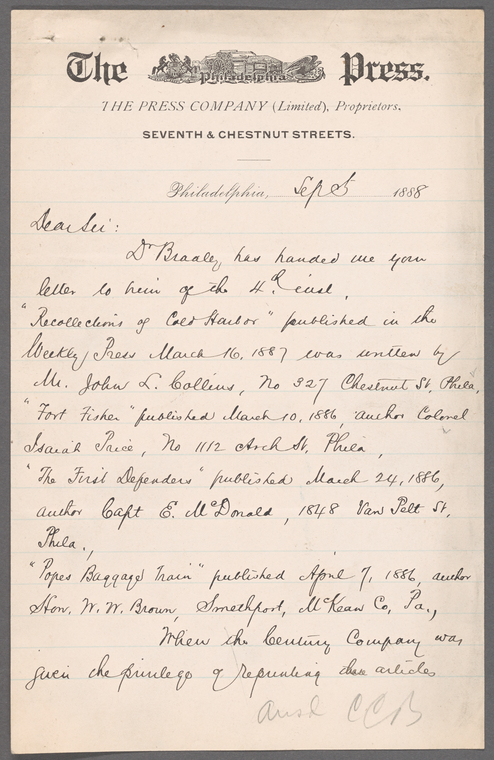 The Philadelphia Press.
THE PRESS COMPANY (Limited), Proprietors.
SEVENTH & CHESTNUT STREETS.
Philadelphia, Sept 5 1888
Dear Sir:
Dr Bradley has handed me your
letter to him of the 4th inst.
"Recollections of Cold Harbor" published in the
Weekly Press March 16, 1887 was written by
Mr. John L. Collins, No 327 Chestnut St, Phila,
"Fort Fisher" published March 10, 1886, author Colonel
Isaiah Price, No 1112 Arch St, Phila,
"The First Defenders" published March 24, 1886,
author Capt E. McDonald, 1848 Van Pelt St,
Phila.,
"Popes Baggage Train" published April 7, 1886, author
Hon. W. W. Brown, Smethport, McKean Co, Pa.,
When the Century Company was
given the privilege of reprinting these articles
ansd CCB